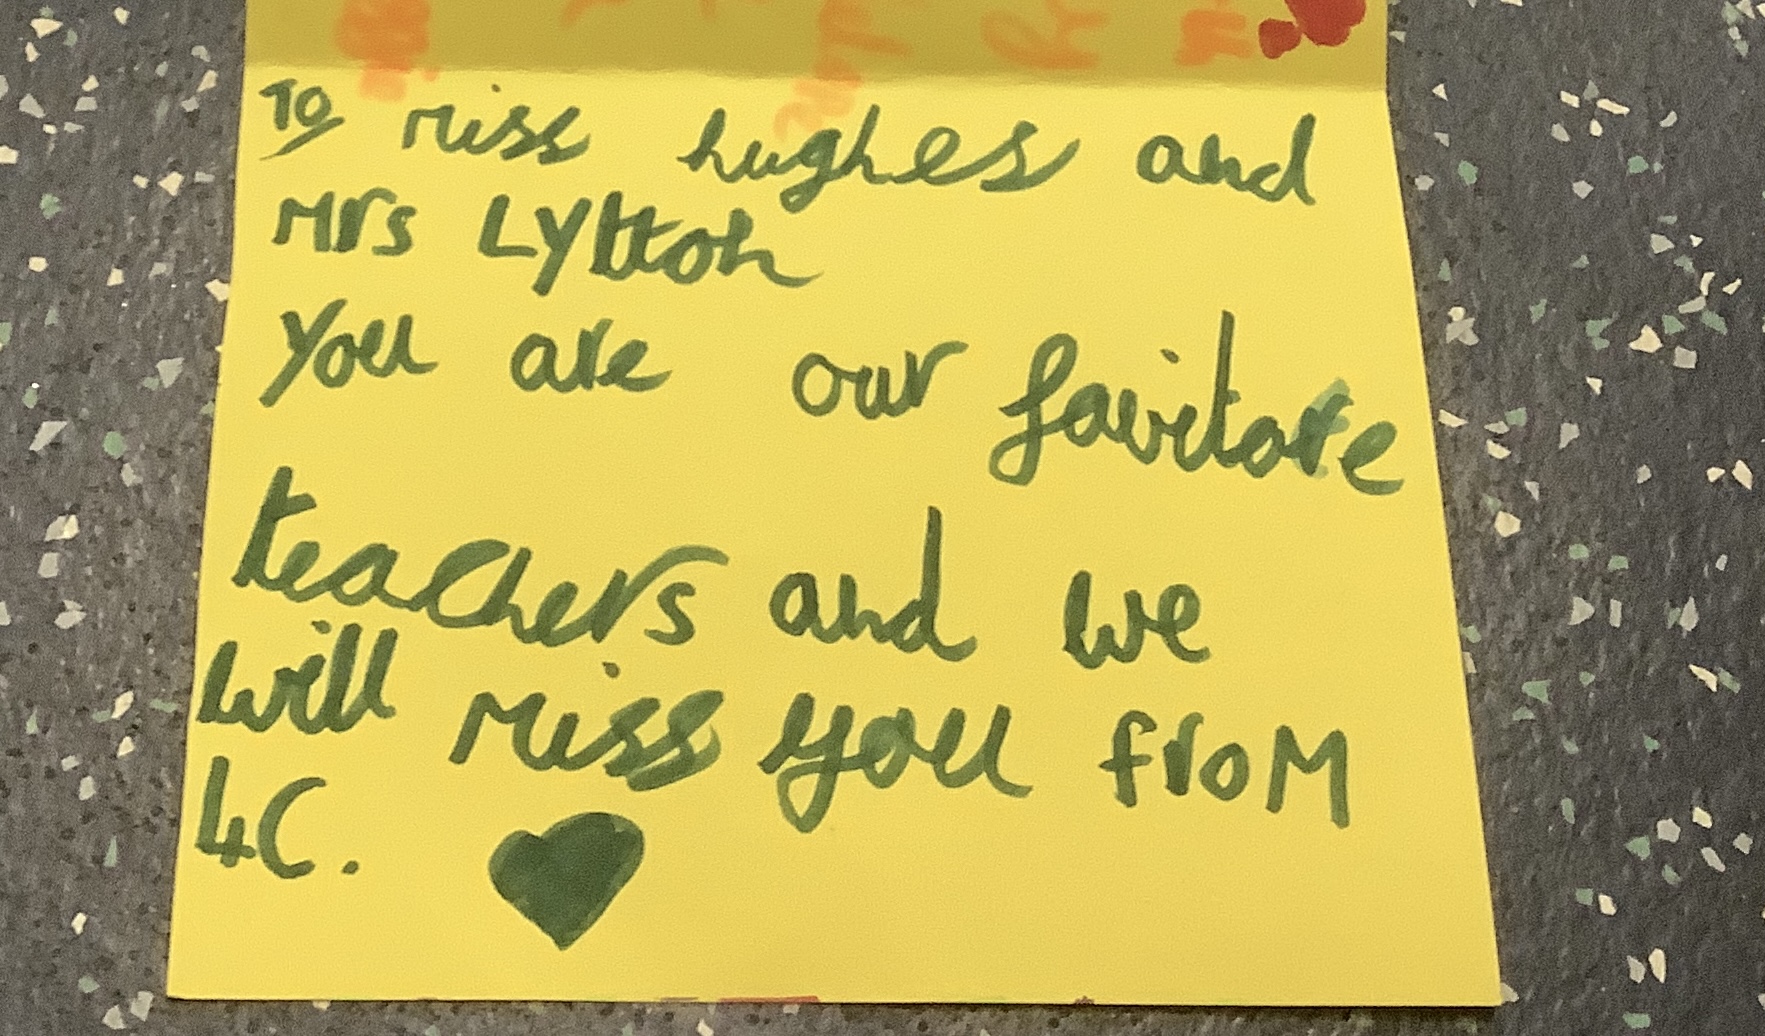 To miss hughes and
Mrs Lytton
you are our favitore
teachers and we
will miss you from
4C.